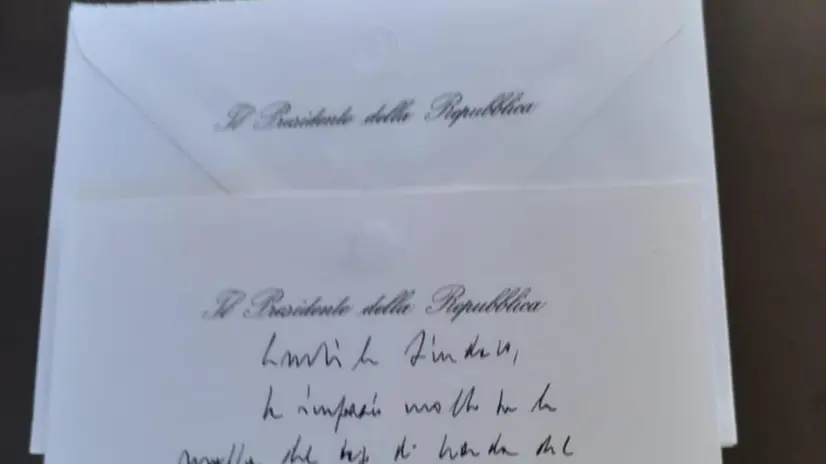 Il Presidente della Repubblica
Il Presidente della Repubblica
Gentile Sindaco,
la ringrazio molto per la